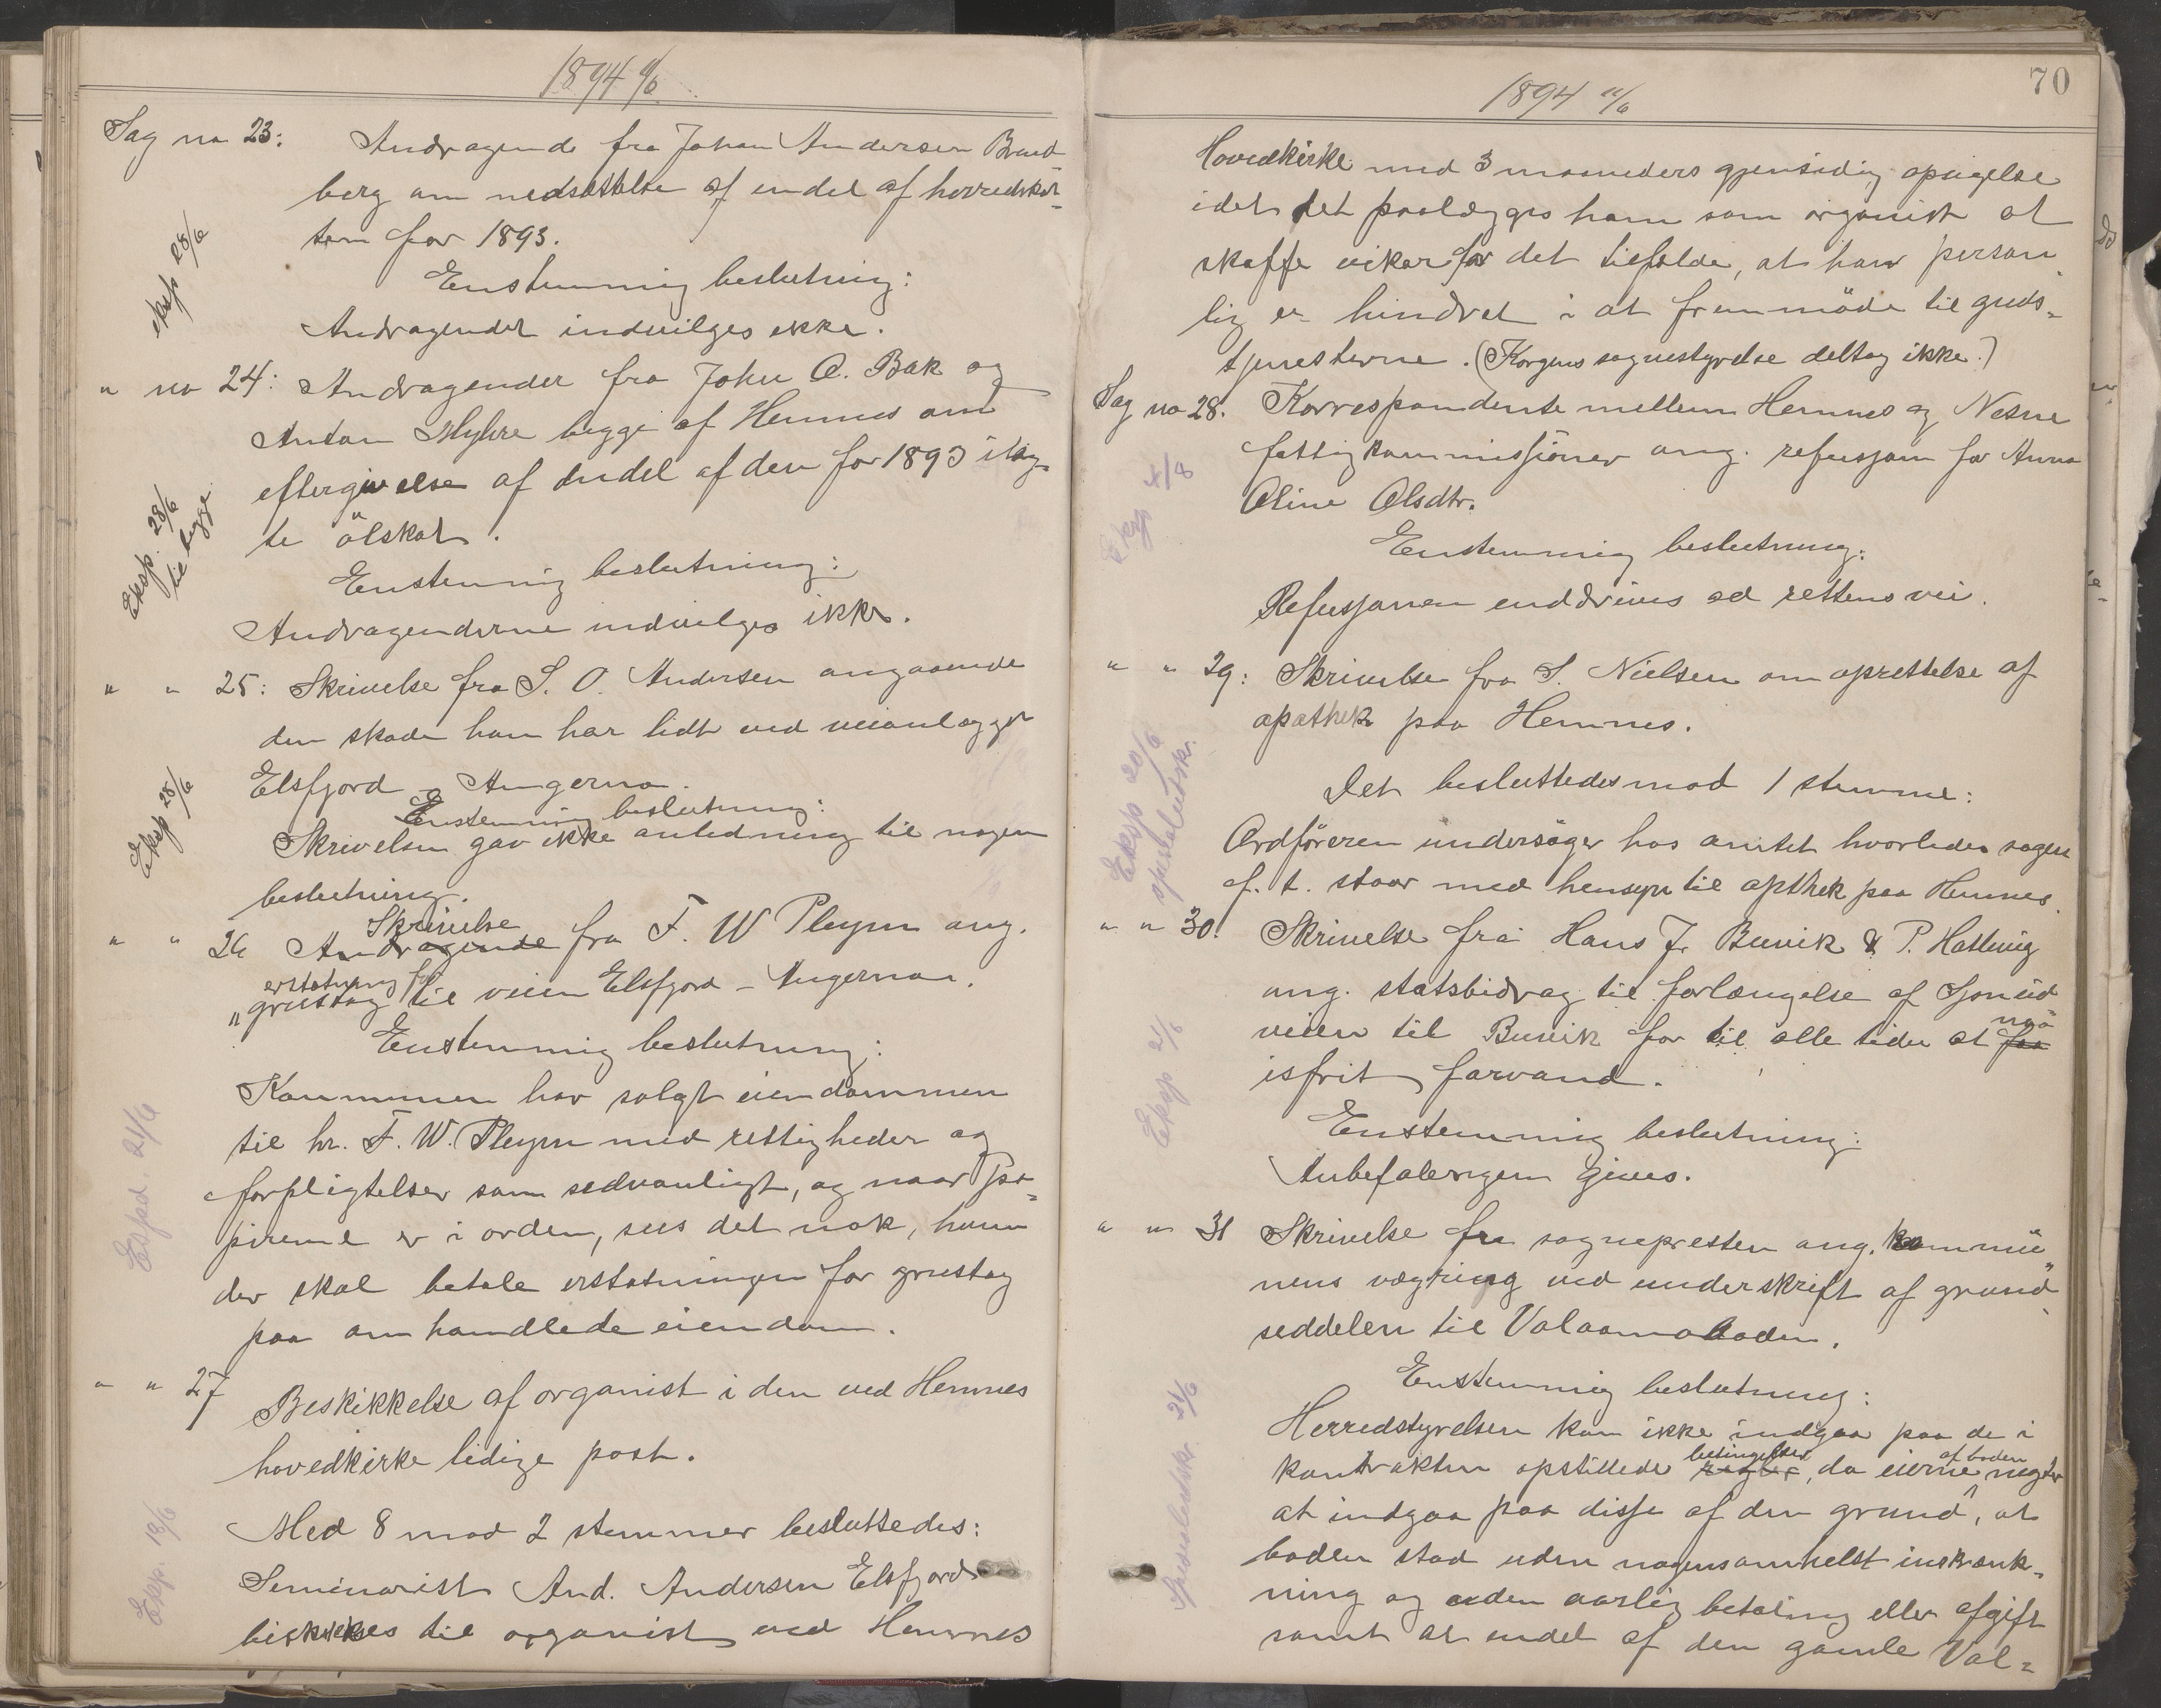 1894 11/6
Sag no 23: Andragende fra Johan Andersen Brend
berg om nedsættelse af endel af herredskat-
ten for 1893.
Eksp 28/6
Enstemmig beslutning:
Andragendet indvilges ikke.
" no 24: Andragender fra John O. Bak og
Anton Myhre begge af Hemnes om
eftergivelse af endel af den for 1893 ilig-
te ölskat.
Eksp. 28/6
til begge
Enstemmig beslutning:
Andragenderne indvilges ikke.
" " 25: Skrivelse fra S. O. Andersen angaaende
den skade han har lidt ved veianlægget
Elsfjord - Angerna.
Enstemmig beslutning:
Eksp 28/6
Skrivelsen gav ikke anledning til nogen
beslutning.
Skrivelse
" " 26 Andragende fra F. W Pleym ang.
erstatning for
"grustag til veien Elsfjord - Angernaa.
Enstemmig beslutning:
Kommunen har solgt eiendommen
til hr. F. W. Pleym med rettigheder og
Espd. 21/6
forpligtelser som sedvanligt, og naar pa-
pirerne er i orden, sees det nok, hvem
der skal betale erstatningen for grustag
paa omhandlede eiendom.
" " 27 Beskikkelse af organist i den ved Hemnes
hovedkirke ledige post.
Eksp. 18/6
Med 8 mod 2 stemmer besluttedes:
Seminarist And. Andersen Elsfjord
beskikkes til organist ved Hemnes
70
1894 11/6
Hovedkirke med 3 maaneders gjensidig opsigelse
idet det paalægges ham som organist at
skaffe vikar for det tilfælde, at han person-
lig er hindret i at fremmöde til guds-
tjenesterne. (Korgens sognestyrelse deltog ikke.)
Sag no 28. Korrespondente mellem Hemnes og Nesne
fattigkommissioner ang. refusjon for Anna
Oline Olsdtr.
Eksp 4/8
Enstemmig beslutning:
Refusjonen inddrives ad rettens vei.
" " 29: Skrivelse fra S. Nielsen om oprettelse af
apathek paa Hemnes.
Eksp 20/6
spesialudskr.
Det besluttedes mod 1 stemme:
Ordföreren undersöger hos amtet hvorledes sagen
f. t. staar med hensyn til apthek paa Hemnes.
" " 30. Skrivelse fra Hans J. Buvik & P. Hatling
ang. statsbidrag til forlængelse af Sjoneid
naa
veien til Buvik for til alle tider at faa
isfrit farvand.
Eksp 21/6
Enstemmig beslutning:
Anbefalingen gives.
" " 31 Skrivelse fra sognepresten ang. kommü
nens vægring ved underskrift af grund
seddelen til Valaamoboden.
Enstemmig beslutning:
Spesialudskr. 21/6
Herredstyrelsen kan ikke indgaa paa de i
betingelser af boden
kontrakten opstillede regler, da eierne negter
at indgaa paa disse af den grund, at
boden stod uden nogensomhelst inskrænk-
ning og uden aarlig betaling eller afgift
samt at endel af den gamle Val-